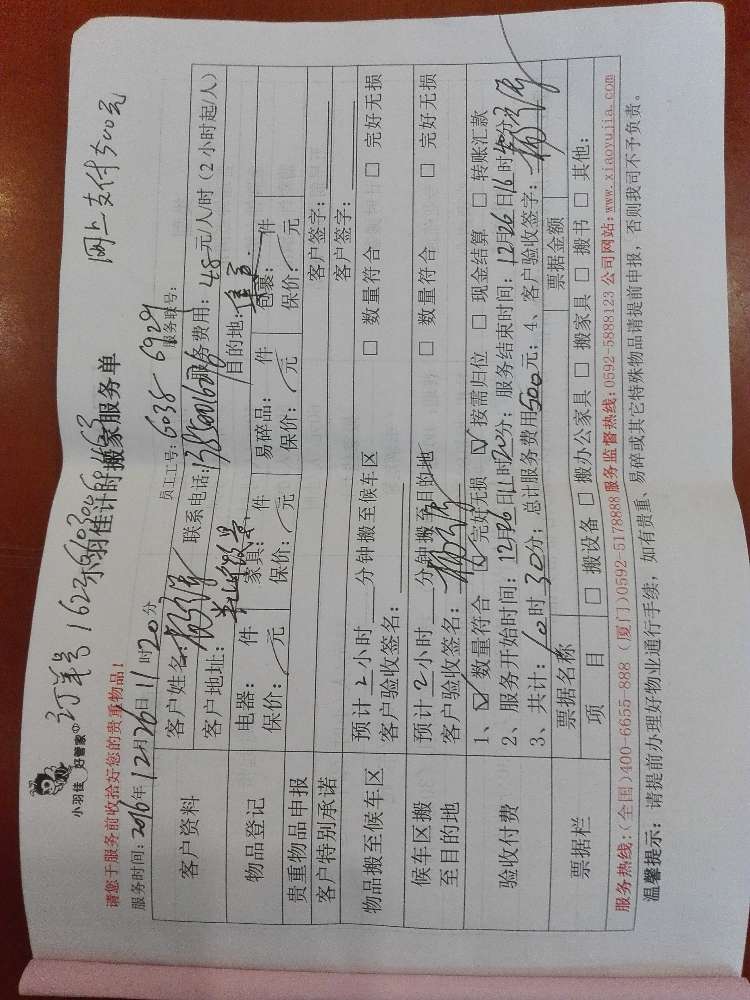 小羽佳 好管家
订单号
网上支付500元
小羽佳计时搬家服务单
请您于服务前收拾好您的贵重物品！
员工工号：6035 6929 服务联号：
服务时间：2016年12月26日11时20分
客户资料 客户姓名： 联系电话： 服务费用：48元/人/时（2小时起/人）
客户地址： 目的地：
物品登记 电器： 件 家具： 件 易碎品： 件 包裹： 件
保价： 元 保价： 元 保价： 元 保价： 元
贵重物品申报 客户签字：
客户特别承诺 客户签字：
物品搬至候车区 预计2小时 分钟搬至候车区 □ 数量符合 □ 完好无损
客户验收签名：
候车区搬至目的地 预计2小时 分钟搬至目的地 □ 数量符合 □ 完好无损
客户验收签名：
验收付费 1、☑ 数量符合 ☑ 完好无损 ☑ 按需归位 □ 现金结算 □ 转账汇款
2、服务开始时间：12月26日11时20分；服务结束时间：12月26日16时 分
3、共计：10时30分；总计服务费用500元；4、客户验收签字：
票据栏 票据名称 票据金额
项 目 □ 搬设备 □ 搬办公家具 □ 搬家具 □ 搬书 □ 其他：
服务热线：（全国）400-6655-888（厦门）0592-5178888 服务监督热线：0592-5888123 公司网站：www.xiaoyujia.com
温馨提示：请提前办理好物业通行手续，如有贵重、易碎或其它特殊物品请提前申报，否则我司不予负责。